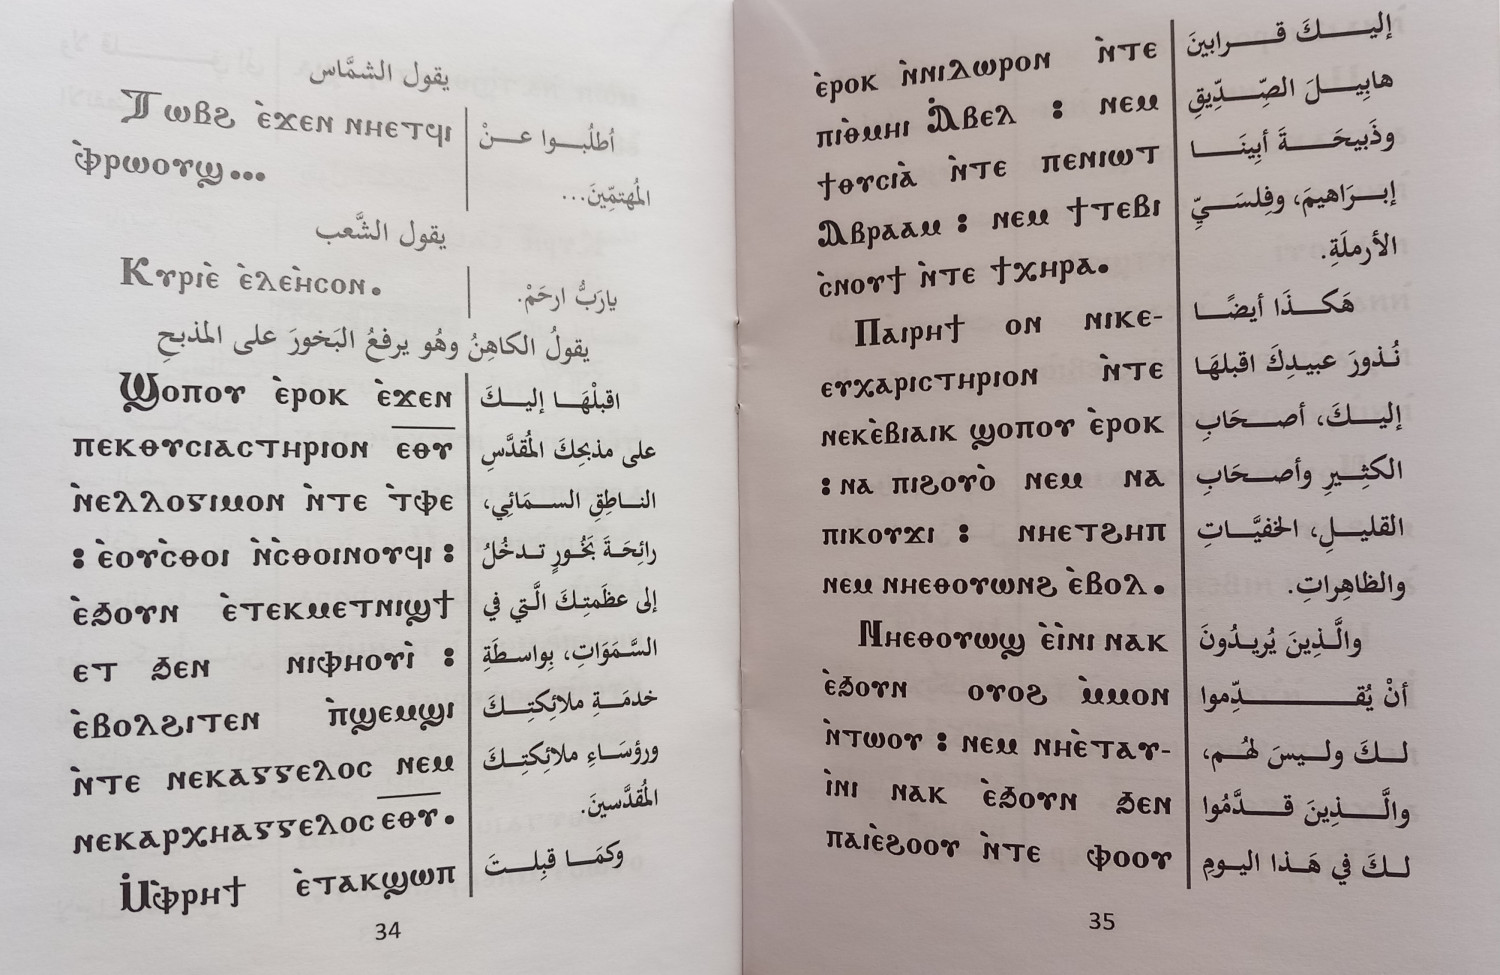 يقول الشمَّاس
Ⲧⲱⲃϩ ⲉ̀ϫⲉⲛ ⲛⲏⲉⲧϥⲓ
ⲙ̀ⲫⲣⲱⲟⲩϣ...
أُطلُبوا عنْ
المُهتمِّينَ...
يقول الشَّعب
Ⲕⲩⲣⲓⲉ̀ ⲉ̀ⲗⲉⲏ̀ⲥⲟⲛ.
ياربُّ ارحَمْ.
يقولُ الكاهِنُ وهُو يرفعُ البَخورَ على المذبحِ
Ϣⲟⲡⲟⲩ ⲉ̀ⲣⲟⲕ ⲉ̀ϫⲉⲛ
ⲡⲉⲕⲑⲩⲥⲓⲁⲥⲧⲏⲣⲓⲟⲛ ⲉ̅ⲑ̅ⲩ̅
ⲛ̀ⲉⲗⲗⲟⲅⲓⲙⲟⲛ ⲛ̀ⲧⲉ ⲧ̀ⲫⲉ
: ⲉ̀ⲟⲩⲥ̀ⲑⲟⲓ ⲛ̀ⲥ̀ⲑⲟⲓⲛⲟⲩϥⲓ :
ⲉ̀ϧⲟⲩⲛ ⲉ̀ⲧⲉⲕⲙⲉⲧⲛⲓϣϯ
ⲉⲧ ϧⲉⲛ ⲛⲓⲫⲏⲟⲩⲓ̀ :
ⲉ̀ⲃⲟⲗϩⲓⲧⲉⲛ ⲡ̀ϣⲉⲙϣⲓ
ⲛ̀ⲧⲉ ⲛⲉⲕⲁⲅⲅⲉⲗⲟⲥ ⲛⲉⲙ
ⲛⲉⲕⲁⲣⲭⲏⲁⲅⲅⲉⲗⲟⲥ ⲉ̅ⲑ̅ⲩ̅.
Ⲙ̀ⲫⲣⲏϯ ⲉ̀ⲧⲁⲕϣⲱⲡ
اقبلْهَا إليكَ
على مذبحِكَ المُقدَّسِ
الناطِقِ السمَائِي،
رائِحَةَ بَخُورٍ تدخُلُ
إلى عظَمتِكَ الَّتي في
السَّمَوَاتِ، بِواسطَةِ
خدمَةِ ملائِكتِكَ
ورؤسَاءِ ملائِكتِكَ
المُقدَّسينَ.
وكمَا قبِلتَ
34
ⲉ̀ⲣⲟⲕ ⲛ̀ⲛⲓⲇⲱⲣⲟⲛ ⲛ̀ⲧⲉ
ⲡⲓⲑ̀ⲙⲏⲓ Ⲁ̀ⲃⲉⲗ : ⲛⲉⲙ
ϯⲑⲩⲥⲓⲁ̀ ⲛ̀ⲧⲉ ⲡⲉⲛⲓⲱⲧ
Ⲁⲃⲣⲁⲁⲙ : ⲛⲉⲙ ϯⲧⲉⲃⲓ
ⲥ̀ⲛⲟⲩϯ ⲛ̀ⲧⲉ ϯⲭⲏⲣⲁ.
Ⲡⲁⲓⲣⲏϯ ⲟⲛ ⲛⲓⲕⲉ-
ⲉⲩⲭⲁⲣⲓⲥⲧⲏⲣⲓⲟⲛ ⲛ̀ⲧⲉ
ⲛⲉⲕⲉ̀ⲃⲓⲁⲓⲕ ϣⲟⲡⲟⲩ ⲉ̀ⲣⲟⲕ
: ⲛⲁ ⲡⲓϩⲟⲩⲟ̀ ⲛⲉⲙ ⲛⲁ
ⲡⲓⲕⲟⲩϫⲓ : ⲛⲏⲉⲧϩⲏⲡ
ⲛⲉⲙ ⲛⲏⲉⲑⲟⲩⲱⲛϩ ⲉ̀ⲃⲟⲗ.
Ⲛⲏⲉⲑⲟⲩⲱϣ ⲉ̀ⲓ̀ⲛⲓ ⲛⲁⲕ
ⲉ̀ϧⲟⲩⲛ ⲟⲩⲟϩ ⲙ̀ⲙⲟⲛ
ⲛ̀ⲧⲱⲟⲩ : ⲛⲉⲙ ⲛⲏⲉ̀ⲧⲁⲩ-
ⲓ̀ⲛⲓ ⲛⲁⲕ ⲉ̀ϧⲟⲩⲛ ϧⲉⲛ
ⲡⲁⲓⲉ̀ϩⲟⲟⲩ ⲛ̀ⲧⲉ ⲫⲟⲟⲩ
إليكَ قرابينَ
هابِيلَ الصِّدِّيقِ
وذَبيحَةَ أبِينَا
إبرَاهيمَ، وفِلسَيِّ
الأرملَةِ.
هَكذَا أيضًا
نُذورَ عبيدِكَ اقبلهَا
إليكَ، أصحَابِ
الكثِيرِ وأصحَابِ
القليلِ، الخفيَّاتِ
والظاهِراتِ.
والَّذِينَ يُريدُونَ
أنْ يُقدِّموا
لكَ وليسَ لهُم،
والَّذِينَ قدَّمُوا
لكَ في هَذا اليومِ
35